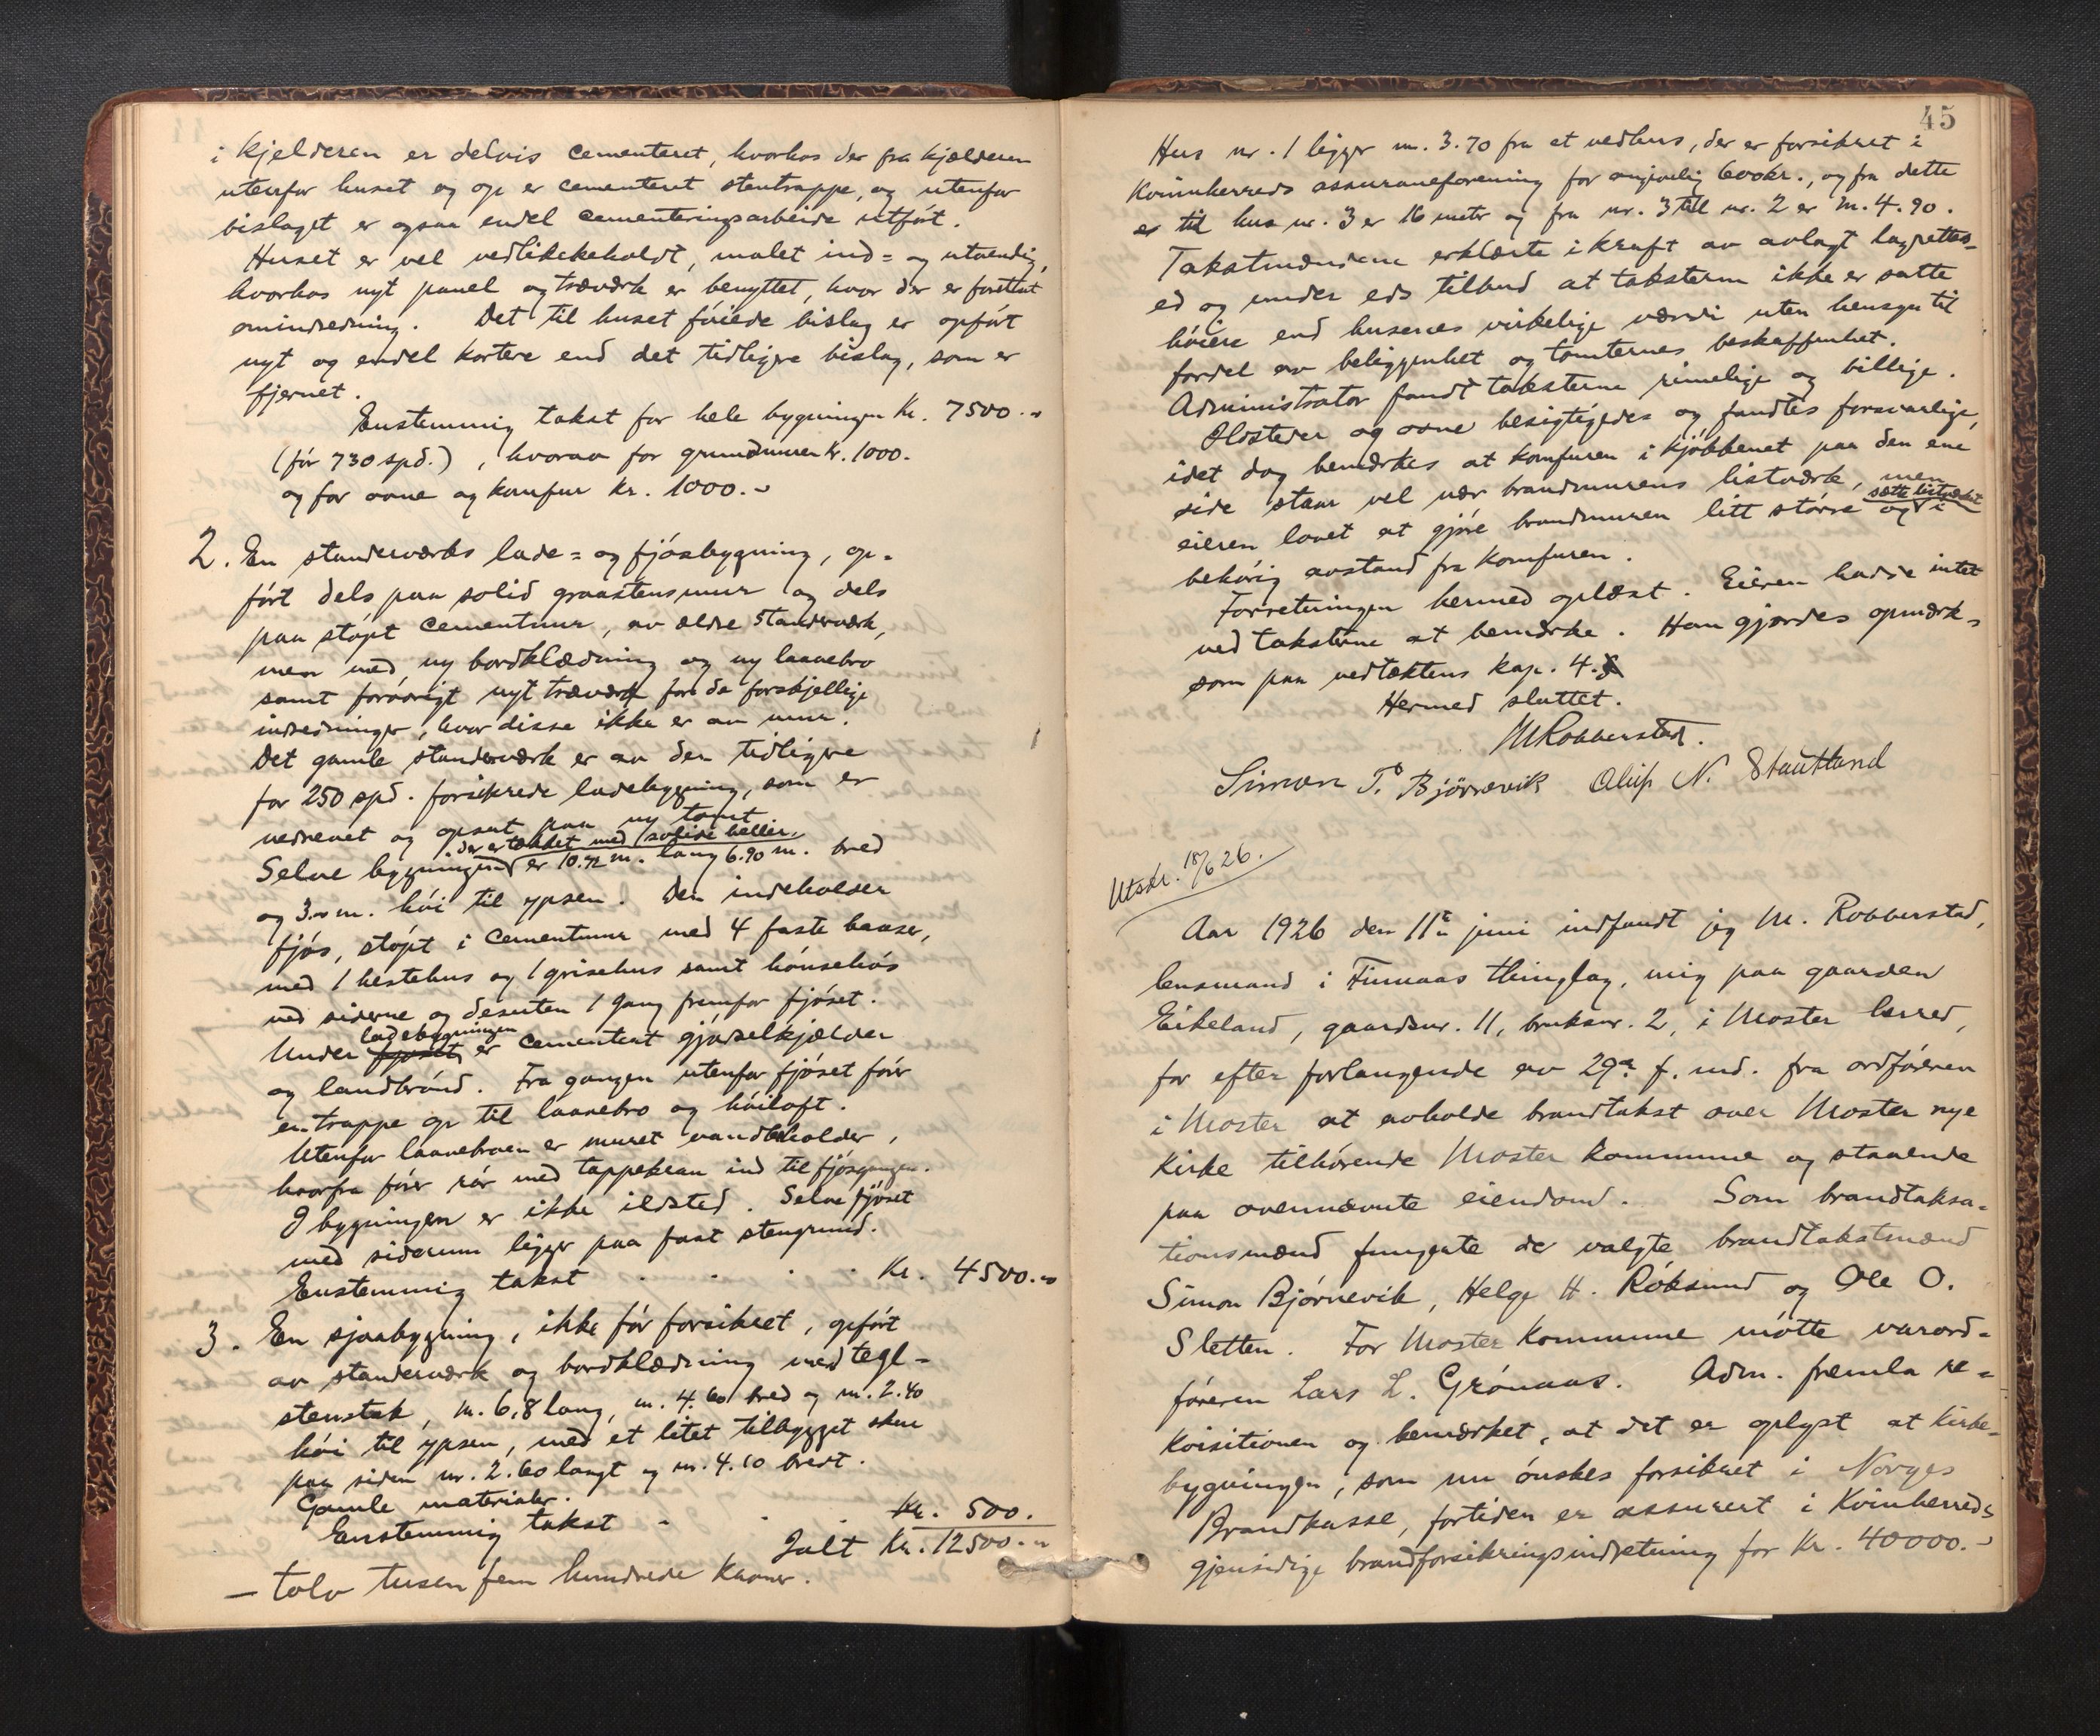 i kjelderen er delvis cementeret, hvorhos der fra kjælderen
utenfor huset og op er cementeret stentrappe, og utenfor
bislaget er ogsaa endel cementeringsarbeide utført.
Huset er vel vedlikekeholdt, malet ind= og utvendig,
hvorhos nyt panel og træværk er benyttet, hvor der er foretat
omindredning. Det til huset føiede bislag er opført
nyt og endel kortere end det tidligere bislag, som er
fjernet.
Enstemmig takst for hele bygningen Kr. 7500.-
(før 730 spd.), hvorav for grundmuren Kr. 1000.
og for ovne og komfur Kr. 1000.-
2. En standerværks lade= og fjøsbygning, op-
ført dels paa solid graastensmur og dels
paa støpt cementmur, av ældre standerværk,
men med ny bordklædning og ny laavebro
samt forøvrigt nyt træværk for de forskjellige
indredninger, hvor disse ikke er av mur.
Det gamle standerværk er av den tidligere
for 250 spd. forsikrede ladebygning, som er
nedrevet og opsat paa ny tomt
der er tækket med solide heller,
Selve bygningen er 10.92 m. lang 6.90 m. bred
og 3.00 m. høi til ypsen. Den indeholder
fjøs, støpt i cementmur med 4 faste baaser,
med 1 hestehus og 1 grisehus samt hønsehøs
ved siderne og desuten 1 gang fremfor fjøset.
ladebygningen
Under fjøset er cementert gjødselkjælder
og landbrønd. Fra gangen utenfor fjøset fører
en trappe op til laavebro og høiloft.
Utenfor laavebroen er muret vandbeholder,
hvorfra fører rør med tappekran ind til fjøsgangen.
I bygningen er ikke ildsted. Selve fjøset
med siderum ligger paa fast stengrund.
Enstemmig takst . . . . Kr. 4500.-
3. En sjøabygning, ikke før forsikret, opført
av standerværk og bordklædning med tegl-
stenstak, m. 6,8 lang, m. 4.60 bred og m. 2.40
høi til ypsen, med et litet tilbygget skur
paa siden m. 2.60 langt og m. 4.10 bredt.
Gamle materialer.
Enstemmig takst - . . Kr. 500.
Ialt Kr. 12500.-
— tolv tusen fem hundrede Kroner.
45
Hus nr. 1 ligger m. 3.70 fra et vedhus, der er forsikret i
Kvinnherreds assuranceforening for angivelig 600 kr., og fra dette
er til hus nr. 3 er 16 meter og fra nr. 3 till nr. 2 er m. 4.90.
Takstmændene erklærte i kraft av avlagt lagrettes-
ed og under eds tilbud at taksterne ikke er satte
høiere end husenes virkelige værdi uten hensyn til
fordel av beliggenhet og tomternes beskaffenhet.
Administrator fandt taksterne rimelige og billige.
Ildsteder og ovne besigtigedes og fandtes forsvarlige,
idet dog bemærkes at komfuren i kjøkkenet paa den ene
side staar vel nær brandmurens listværk, men
sætte listværket
eieren lovet at gjøre brandmuren litt større og i
behørig avstand fra komfuren.
Forretningen hermed oplæst. Eieren hadde intet
ved taksterne at bemærke. Han gjordes opmærk-
som paa vedtæktens kap. 4.
Hermed sluttet.
M Robberstad.
Simon P. Bjørnevik Oluf N. Stautland
Utskr. 18/6 26.
Aar 1926 den 11te juni indfandt jeg M. Robberstad,
lensmand i Finnaas thinglag, mig paa gaarden
Eikeland, gaardsnr. 11, bruksnr. 2, i Moster herred,
for efter forlangende av 29de f. md. fra ordføreren
i Moster at avholde brandtakst over Moster nye
Kirke tilhørende Moster kommune og staaende
paa ovennævnte eiendom. Som brandtaksa-
tionsmænd fungerte de valgte brandtakstmænd
Simon Bjørnevik, Helge H. Røksund og Ole O.
Sletten. For Moster Kommune møtte varaord-
føreren Lars L. Grønaas. Adm. fremla re-
kvisitionen og bemærket, at det er oplyst at kirke-
bygningen, som nu ønskes forsikret i Norges
Brandkasse, fortiden er assurert i Kvinherreds
gjensidige brandforsikringsindretning for Kr. 40000.-